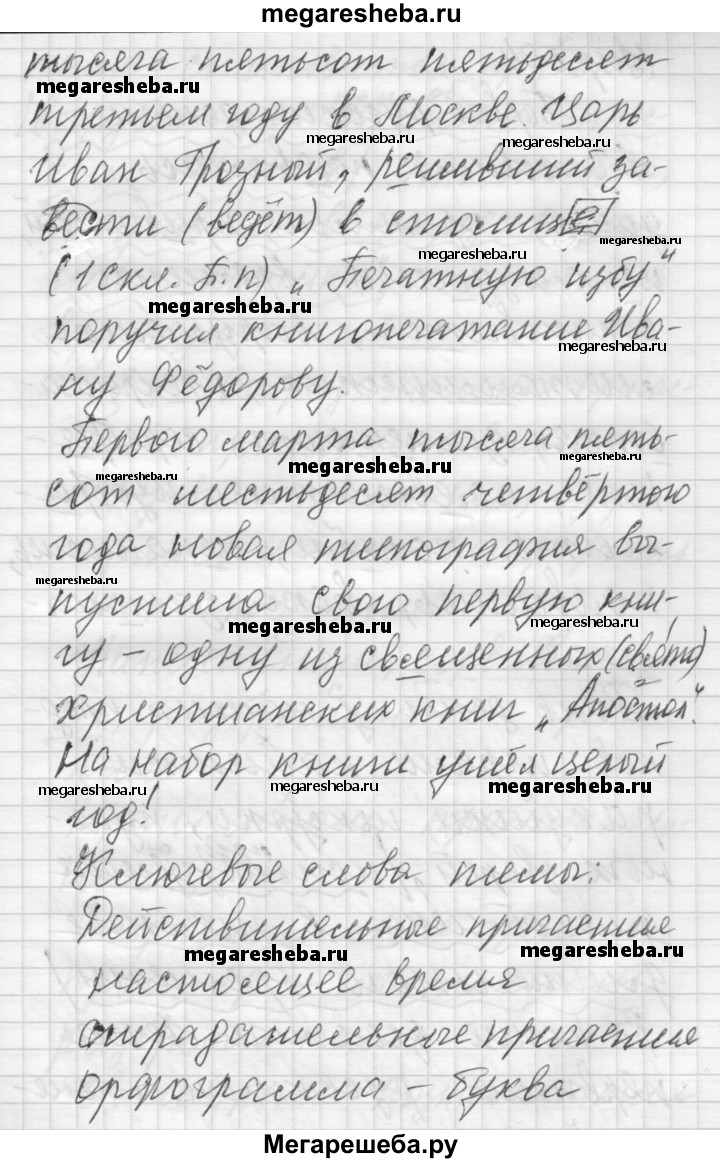 megaresheba.ru
тысяча пятьсот пятьдесят
megaresheba.ru
третьем году в Москве. Царь
megaresheba.ru megaresheba.ru
Иван Грозный, решивший за-
вести (ведёт) в столице
megaresheba.ru
(1 скл. П.п) „Печатную избу"
megaresheba.ru
поручил книгопечатание Ива-
megaresheba.ru
ну Фёдорову.
Первого марта тысяча пять-
megaresheba.ru megaresheba.ru megaresheba.ru
сот шестьдесят четвёртого
года новая типография вы-
megaresheba.ru
пустила свою первую кни-
megaresheba.ru megaresheba.ru
гу – одну из священных (свято)
христианских книг „Апостол".
На набор книги ушёл целый
megaresheba.ru megaresheba.ru megaresheba.ru
год!
Ключевые слова темы:
Действительные причастия
megaresheba.ru megaresheba.ru
настоящее время
страдательные причастия
орфограмма – буква
Мегарешеба.ру